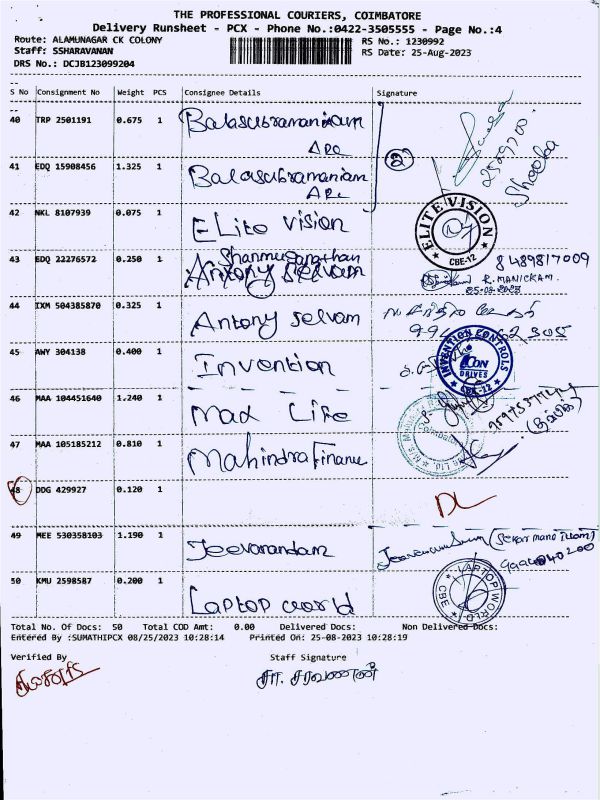 THE PROFESSIONAL COURIERS, COIMBATORE
Delivery Runsheet - PCX - Phone No.:0422-3505555 - Page No.:4
Route: ALAMUNAGAR CK COLONY RS No.: 1230992
Staff: SSHARAVANAN RS Date: 25-Aug-2023
DRS No.: DCJB123099204
S No Consignment No Weight PCS Consignee Details Signature
40 TRP 2501191 0.675 1 Balasubramaniam
2
41 EDQ 15908456 1.325 1 Balasubramaniam
42 NKL 8107939 0.075 1 Elite vision ELITE VISION CBE-12
43 EDQ 22276572 0.250 1 Shanmuganathan 8489817009
Antony Selvam R. MANICKAM.
25-08-2023
44 IXM 504385870 0.325 1 Antony selvam
45 AWY 304138 0.400 1 Invention INVENTION CONTROLS ICON DRIVES CBE-12
46 MAA 104451640 1.240 1 Max Life
47 MAA 105185212 0.810 1 Mahindra Finance
48 DDG 429927 0.120 1 DL
49 MEE 530358103 1.190 1 Jeevanandam
50 KMU 2598587 0.200 1 Laptop world LAPTOP WORLD CBE
Total No. Of Docs: 50 Total COD Amt: 0.00 Delivered Docs: Non Delivered Docs:
Entered By :SUMATHIPCX 08/25/2023 10:28:14 Printed On: 25-08-2023 10:28:19
Verified By Staff Signature
சா. சரவணன்